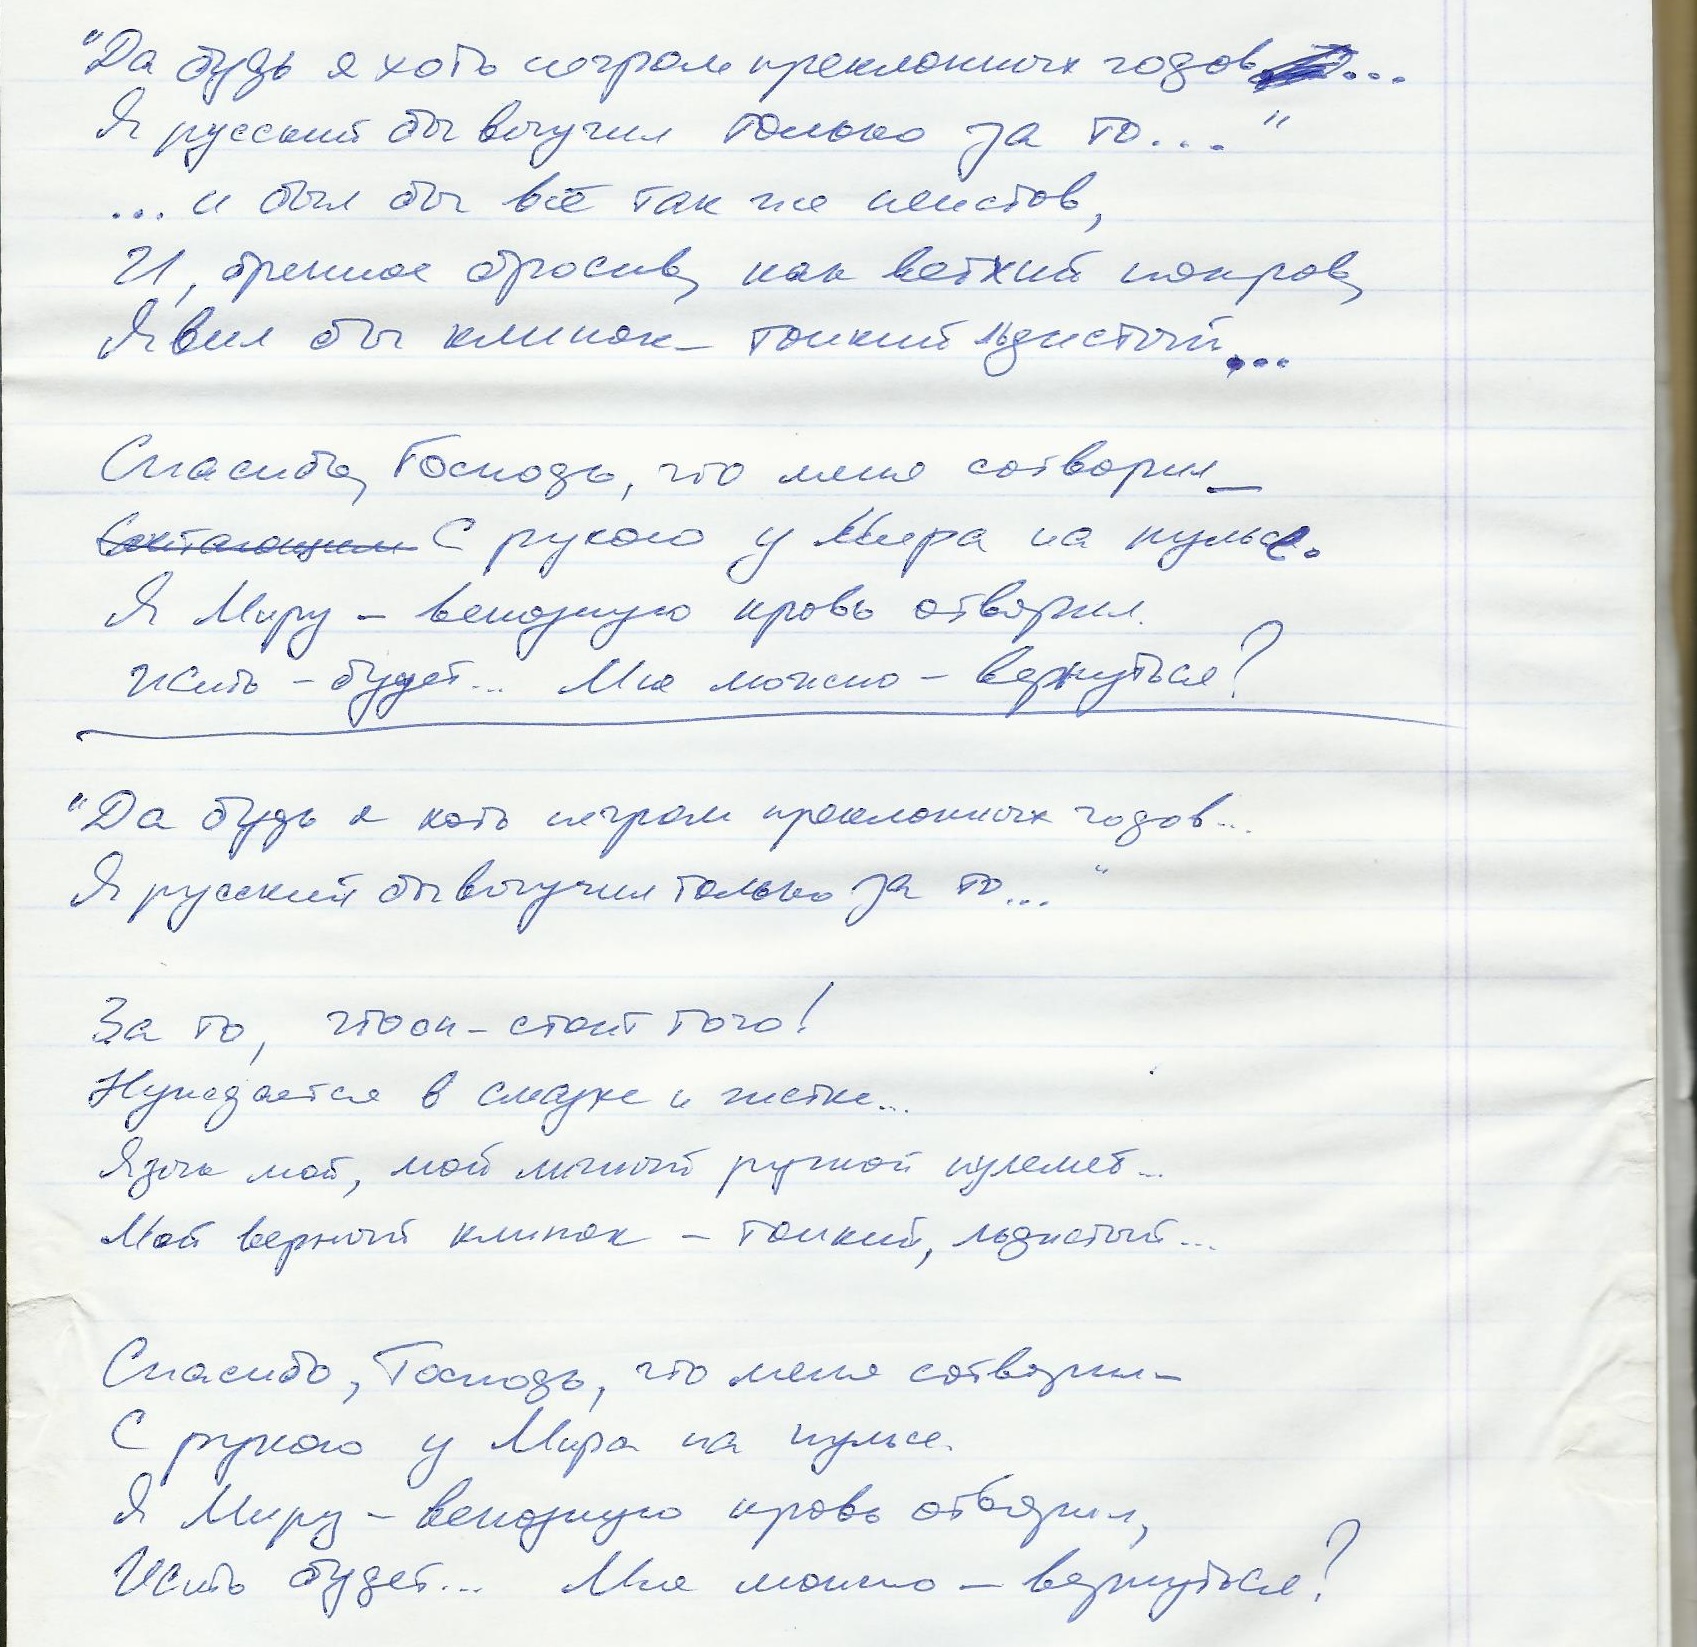 "Да будь я хоть негром преклонных годов...
Я русский бы выучил только за то..."
... и был бы всё так же неистов,
И, бренное сбросив, как ветхий покров,
Явил бы клинок – тонкий льдистый...
Спасибо, Господь, что меня сотворил –
С рукою у Мира на пульсе.
Я Миру – венозную кровь отворил.
Жить – будет... Мне можно – вернуться?
"Да будь я хоть негром преклонных годов...
Я русский бы выучил только за то..."
За то, что он – стоит того!
Нуждается в смазке и чистке...
Язык мой, мой личный ручной пулемет...
Мой верный клинок – тонкий, льдистый...
Спасибо, Господь, что меня сотворил –
С рукою у Мира на пульсе.
Я Миру – венозную кровь отворил,
Жить будет... Мне можно – вернуться?